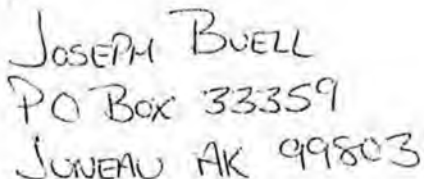 JOSEPH BUELL
PO BOX 33359
JUNEAU AK 99803